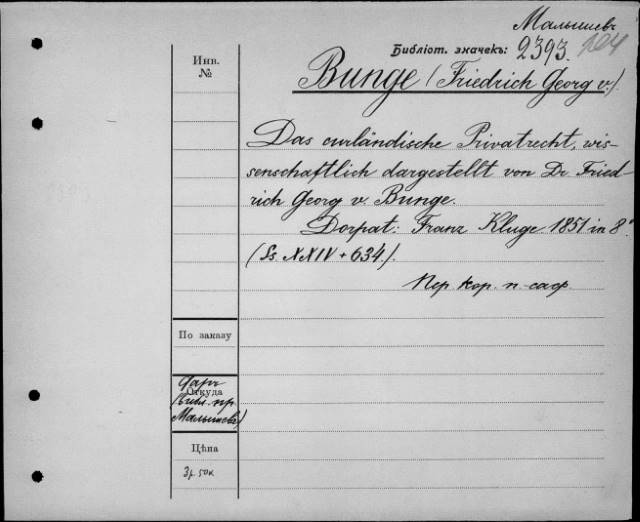 Малышевъ
Библіот. значекъ: 2393. 104
Инв.
№
Bunge (Friedrich Georg v.)
Das curländische Privatrecht, wis-
senschaftlich dargestellt von Dr Fried-
rich Georg v. Bunge.
Dorpat: Franz Kluge 1851 in 8º
(Ss. XXIV + 634.)
Пер. кор. п.-саф.
По заказу
Даръ
Откуда
(библ. пр.
Малышевъ)
Цѣна
3 р. 50 к